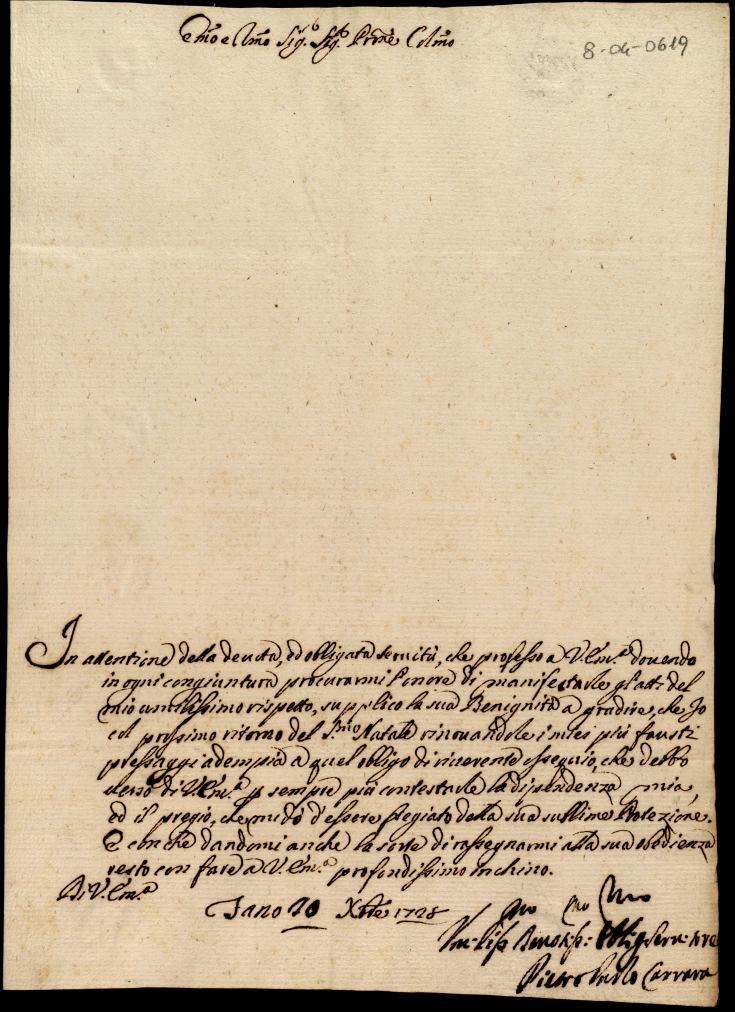 Emo e Rmo Sig.r Sig.r Prone Colmo
8-04-0619
In attenzione della deuota, ed obligata seruitù, che professo a V. Em.a douendo
in ogni congiuntura procurarmi l'onore di manifestarle gl'atti del
mio umilissimo rispetto, supplico la sua Benignità a gradire, che Io
col prossimo ritorno del S.mo Natale rinouandole i miei più fausti
pressaggi adempia a quel obligo di riuerente ossequio, che debbo
verso di V. Em.a p sempre più contestarle la dipendenza mia,
ed il pregio, che mi dò d'essere fregiato della sua sublime Protezione.
E con che dandomi anche la sorte di rassegnarmi alla sua obedienza
resto con fare a V. Em.a profondissimo inchino.
Di V. Em.a
Fano 20 Xbre 1728
mo mo mo
Vmiliss Deuotiss: Obligserure
Pietro Paolo Carrara